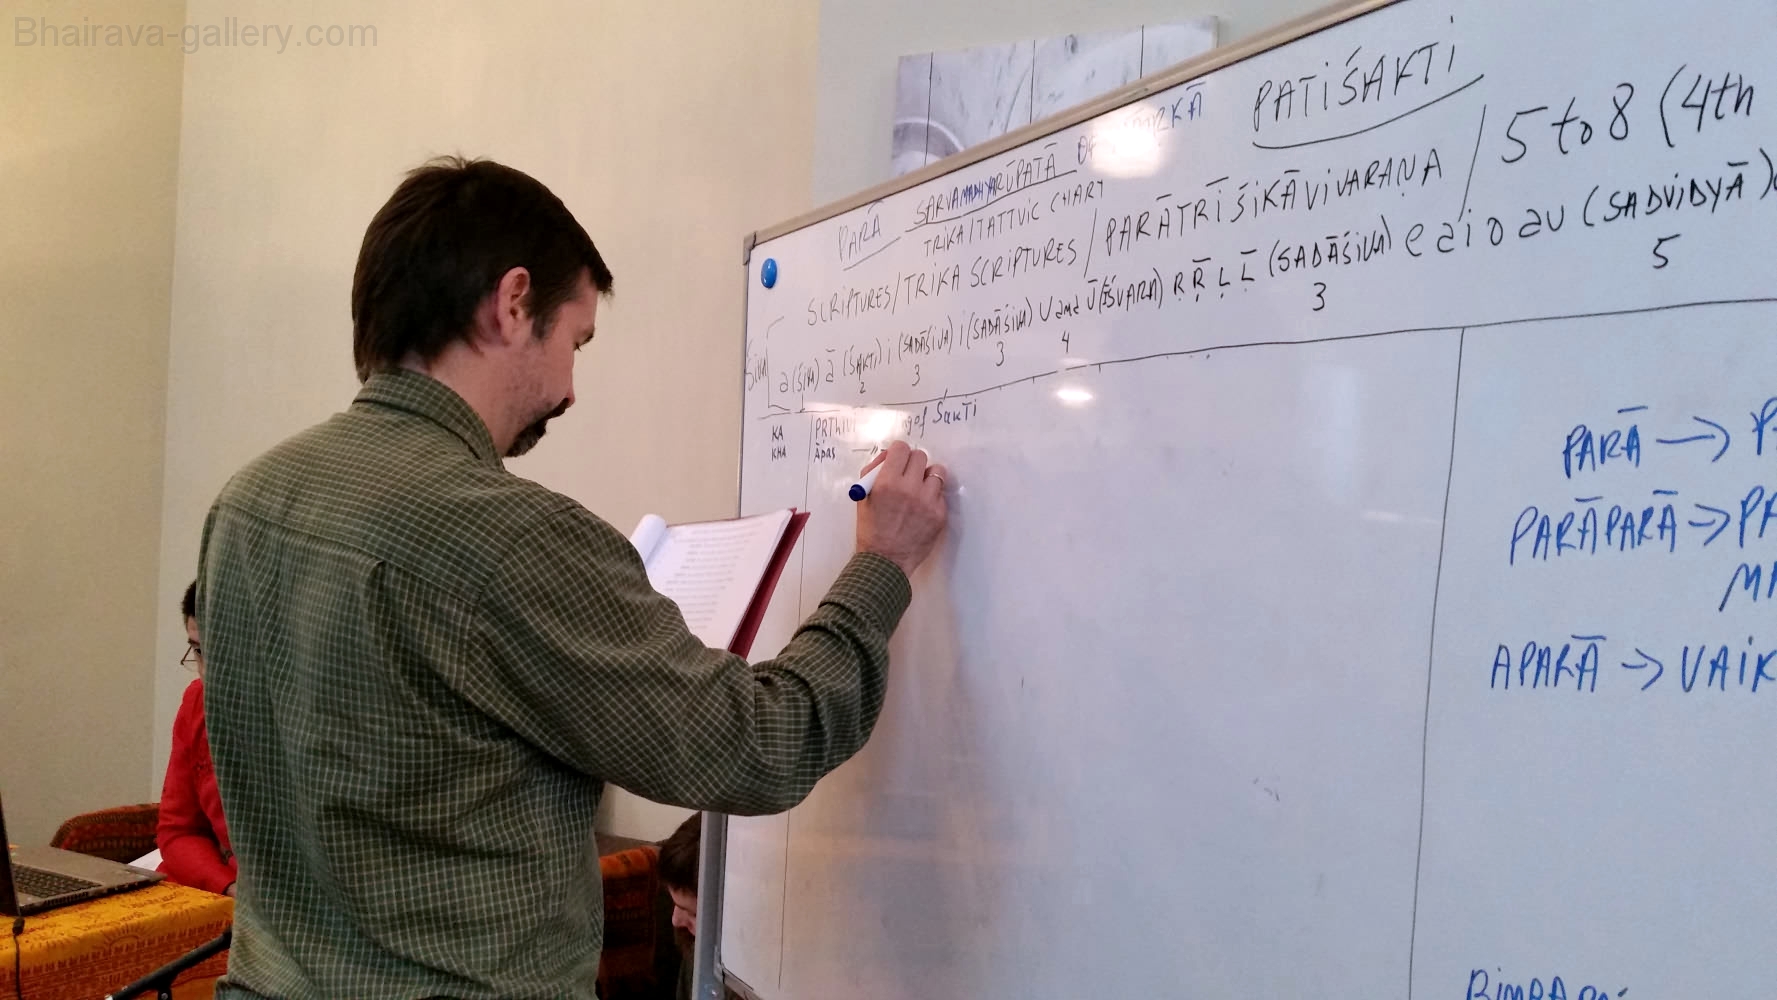 Bhairava-gallery.com
PATIŚAKTI
PARĀ SARVAMADHYARŪPATĀ OF
TRIKA/TATTVIC CHART
SCRIPTURES/TRIKA SCRIPTURES/PARĀTRĪŚIKĀVIVARAṆA/5 to 8 (4th
Śiva
a (ŚIVA) ā (ŚAKTI) i (SADĀŚIVA) i (SADĀŚIVA) U and Ū (ĪŚVARA) Ṛ Ṝ Ḷ Ḹ (SADĀŚIVA) e ai o au (SADVIDYĀ)
1 2 3 3 4 3 5
KA PṚThIVĪ of ŚakTi
KHA Āpas — " —
PARĀ →
PARĀPARĀ →
APARĀ → VAIK